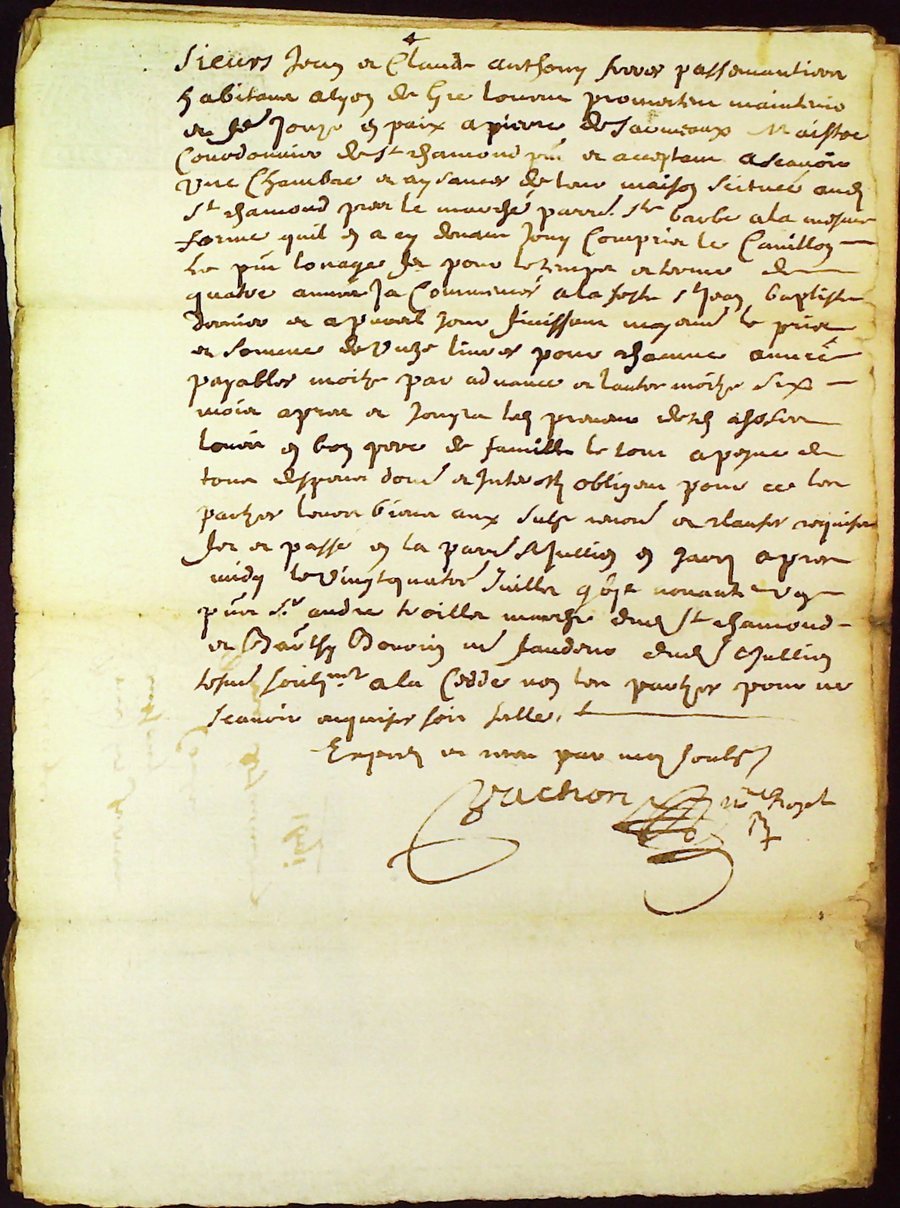 Sieurs Jean et Claude anthony freres passemantiers
habitans a lyon de gre louent promettent maintenir
et fe Jouyr en paix a pierre de Saumeaux Maistre
Courdonnier de St chamond pnt et acceptant ascavoir
Une Chambre et aysances de leur maison scituee aud
St chamond pres le marche parre Ste barbe a la mesme
forme quil en a cy devant Jouy Comprins le
le pnt louage fet pour le temps et terme de
quatre annees Ja Commences a la feste st Jean baptiste
dernier et a pareil Jour finissant moyenant le prix
et somme de Unze livres pour chacune annee
payables moitye par advance et lautre moitye six
mois apres et Jouyra led preneur desd choses
louees en bon pere de famille le tout a peyne de
tous despens dom et Interestz obligent pour ce les
parties leurs biens aux subz renon et clauses requises
fet et passe en la parre St Jullien en Jarez apres
midy le Vingt quatre Juillet nonante Ung
pnts Sr andre marcht dud St chamond
et Barthy me dud St Jullien
tesm soubznes a la Cedde non les parties pour ne
scavoir enquises sont faitte
Expedie et receu par moy soubz
Vachon nre Royal